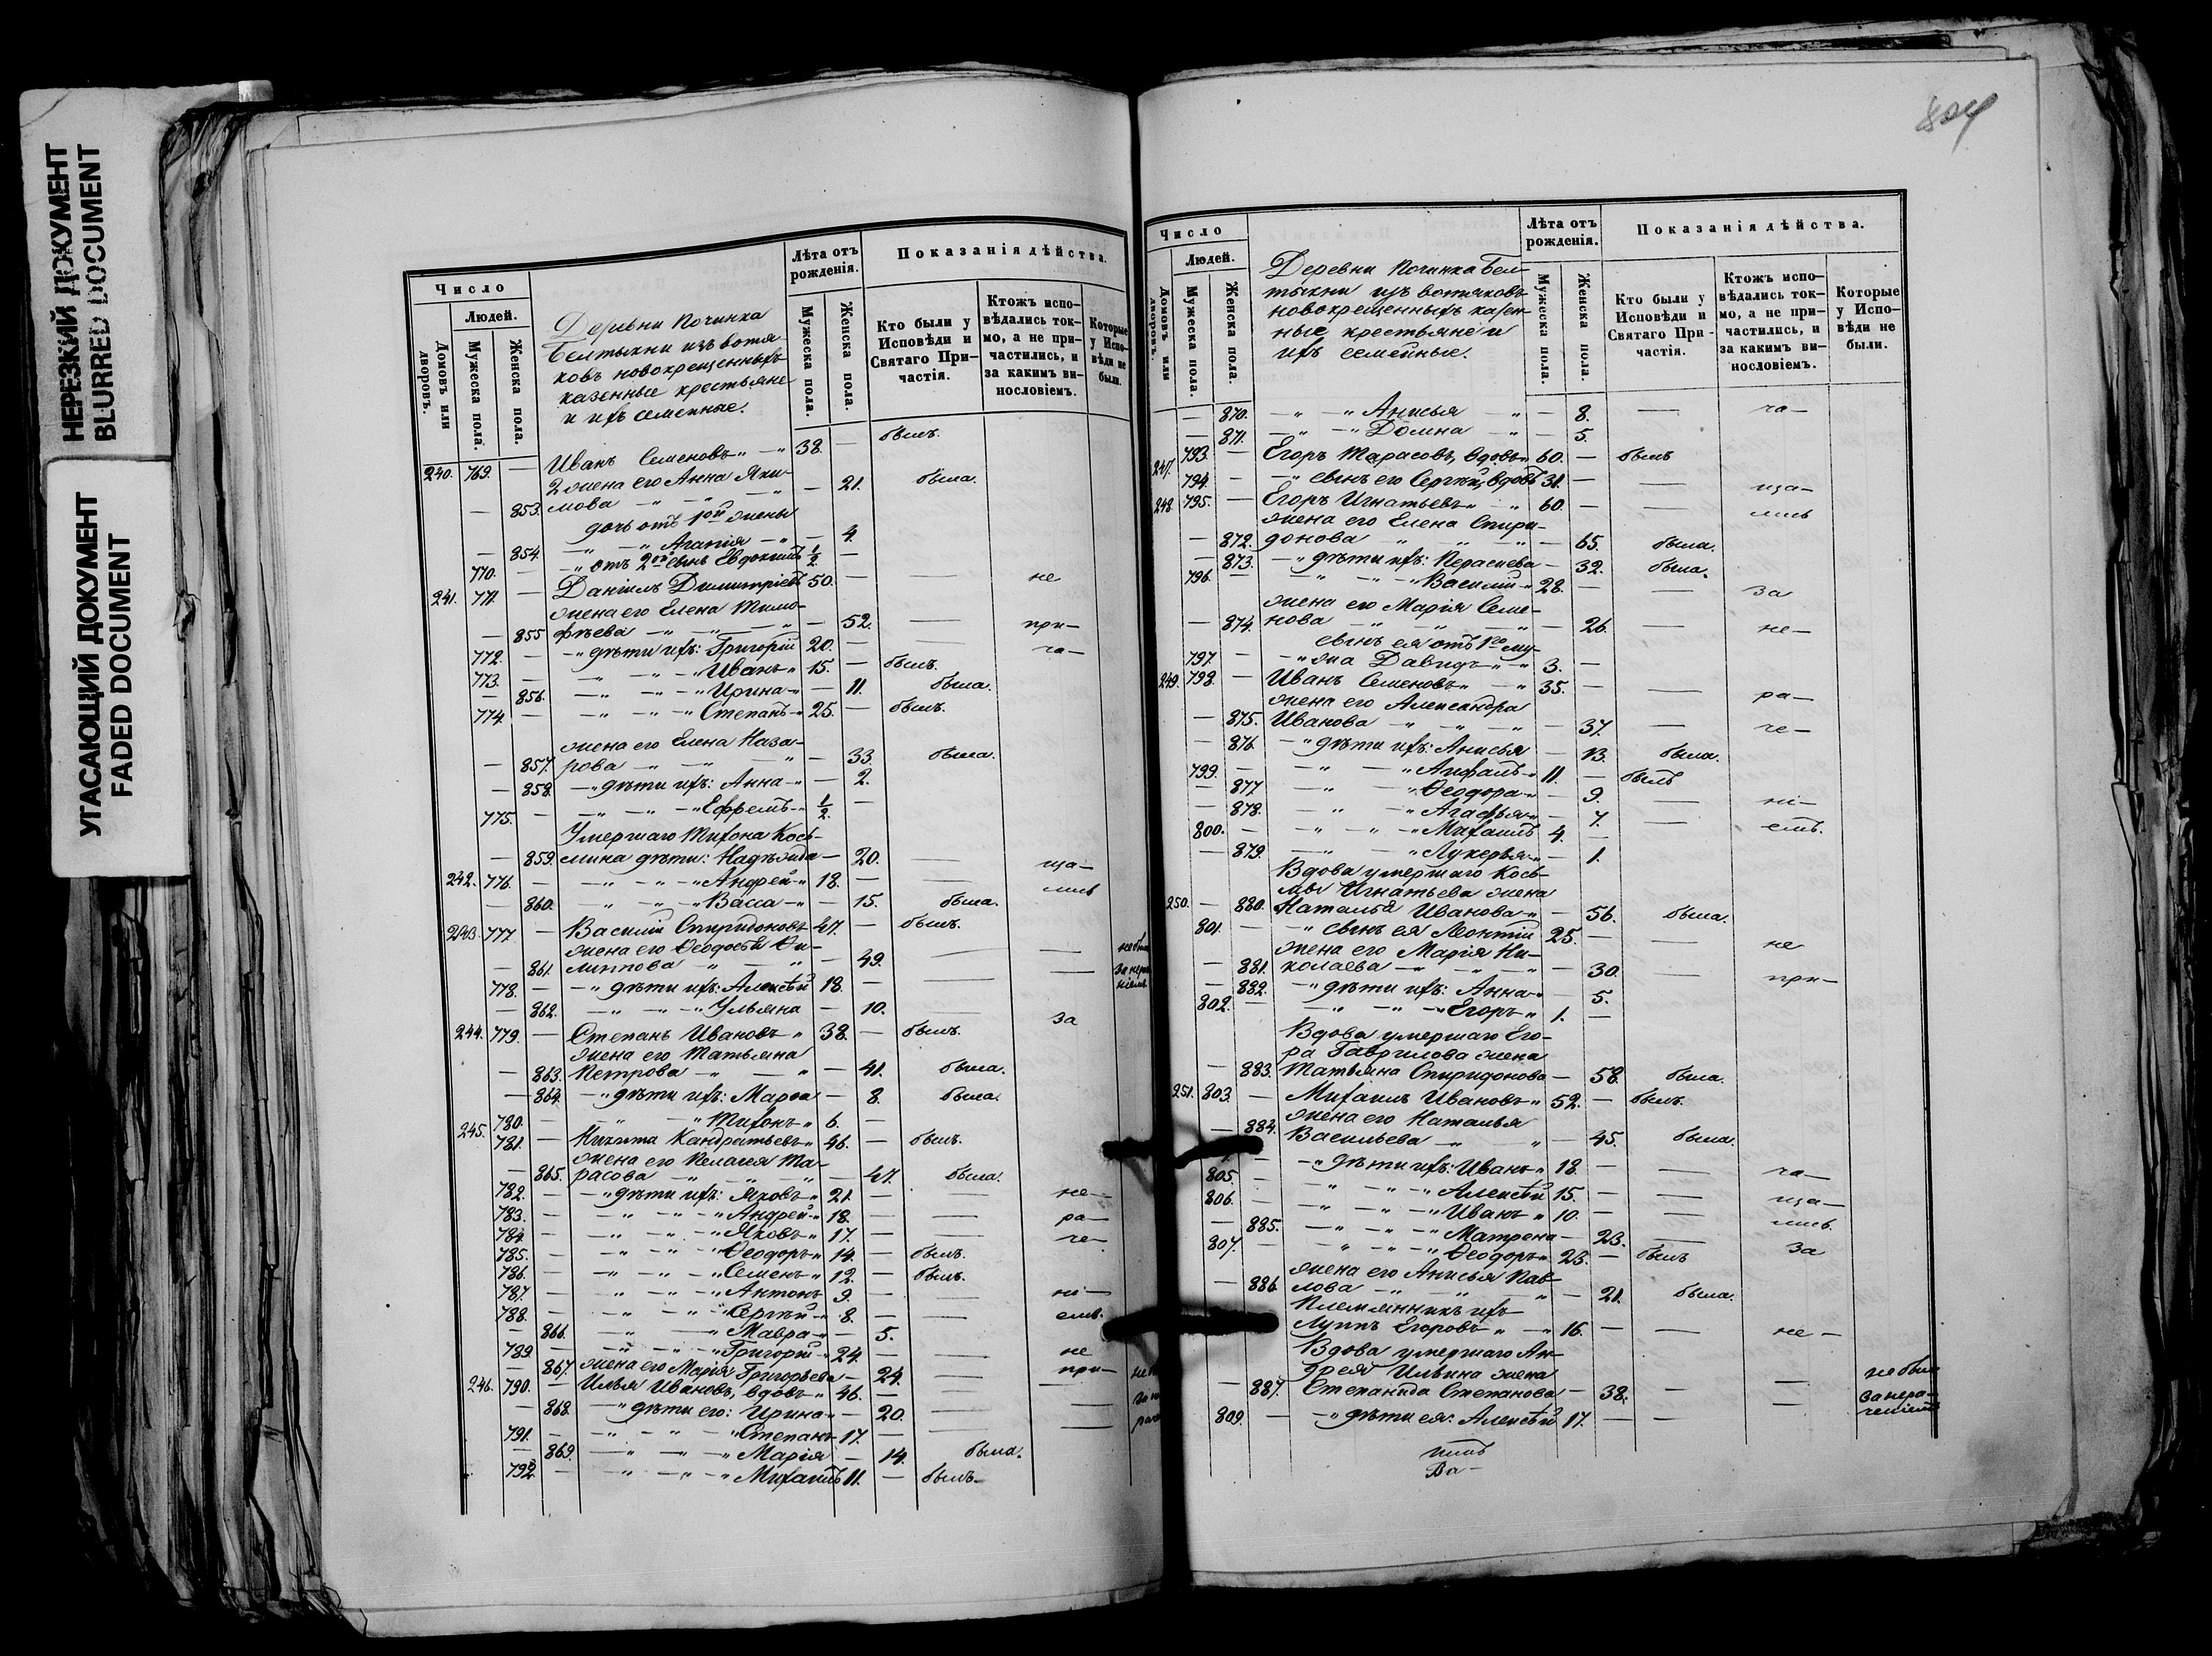 НЕРЕЗКИЙ ДОКУМЕНТ
BLURRED DOCUMENT
УГАСАЮЩИЙ ДОКУМЕНТ
FADED DOCUMENT
Число
Людей.
Домовъ или дворовъ.
Мужеска пола.
Женска пола.
Деревни Починка
Белтыкни изъ вотя-
ковъ новокрещенныхъ
казенные крестьяне
и ихъ семейные.
Лѣта отъ рожденія.
Мужеска пола.
Женска пола.
Показанія дѣйства.
Кто были у Исповѣди и Святаго Причастія.
Ктожъ испо-вѣдались ток-мо, а не при-частились, и за какимъ ви-нословіемъ.
Которые у Испо-вѣди не были.
240. 769. — Иванъ Семеновъ 38. — былъ.
2 жена его Анна Яки-
— 853. мова — 21. была.
дочь отъ 1ой жены
— 854. Агапія — 4.
770. — отъ 2ой сынъ Евдокимъ ½ —
241. 771. — Даніилъ Димитріевъ 50. — — не
жена его Елена Тимо-
— 855 фѣева — 52. — при-
772. — дѣти ихъ: Григорій 20. — ча-
773. — Иванъ 15. — былъ.
— 856. Ирина — 11. была.
774 — Степанъ 25. — былъ.
жена его Елена Наза-
— 857. рова — 33. была.
— 858. дѣти ихъ: Анна — 2.
775. — Ефремъ ½. —
Умершаго Тихона Кось-
— 859. мина дѣти: Надѣжда — 20. — ща-
242. 776. — Андрей 18. — — лись
— 860. Васса — 15. была.
243. 777 — Василій Спиридоновъ 47. — былъ.
жена его Ѳеодосья Фи-
— 861. липпова — 49. — —
778. — дѣти ихъ: Алексѣй 18. — — —
— 862. Ульяна — 10.
244. 779. — Степанъ Ивановъ 38. — былъ. за
жена его Татьяна
— 863. Петрова — 41. была.
— 864. дѣти ихъ: Марѳа — 8. была.
780. — Тихонъ 6. —
245. 781. — Никита Кандратьевъ 46. — былъ.
жена его Пелагея Та-
— 865. расова — 47. была.
782. — дѣти ихъ: Яковъ 21. — не-
783. — Андрей 18. — — ра-
784. — Яковъ 17. — — че-
785. — Ѳеодоръ 14. — былъ.
786. — Семенъ 12. — былъ.
787. — Антонъ 9. — — ні-
788. — Сергѣй 8. — — емъ.
— 866. Мавра — 5.
789. — Григорій 24. — — не
— 867. жена его Марія Григорьева — 24. — при-
246. 790. — Илья Ивановъ, вдовъ 46. —
— 868. дѣти его: Ирина — 20. — —
791. — Степанъ 17. — — —
— 869. Марія — 14. была.
792. — Михаилъ 11. — былъ
Число
Людей.
Домовъ или дворовъ.
Мужеска пола.
Женска пола.
Деревни Починка Бел-
тыкни изъ вотяковъ
новокрещенныхъ казен-
ные крестьяне и
ихъ семейные.
Лѣта отъ рожденія.
Мужеска пола.
Женска пола.
Показанія дѣйства.
Кто были у Исповѣди и Святаго При-частія.
Ктожъ испо-вѣдались ток-мо, а не при-частились, и за какимъ ви-нословіемъ.
Которые у Испо-вѣди не были.
— 870. Анисья — 8. — ча-
— 871. Домна — 5.
247. 793. — Егоръ Тарасовъ, вдовъ 60. — былъ
794. — сынъ его Сергѣй, вдовъ 31. — — ща-
248. 795. — Егоръ Игнатьевъ 60. — — лись
жена его Елена Спири-
— 872. донова — 65. была.
— 873. дѣти ихъ: Параскева — 32. была.
796. — Василій 28. — — за
жена его Марія Семе-
— 874. нова — 26. — не-
сынъ ея отъ 1го му-
797. — жа Давидъ 3. —
249. 798. — Иванъ Семеновъ 35. — — ра-
жена его Александра
— 875. Иванова — 37. — че-
— 876. дѣти ихъ: Анисья — 13. была.
799. — Анфалъ 11. — былъ
— 877 Ѳеодора — 9. — ні-
— 878. Агафья — 7. — емъ.
800. — Михаилъ 4. —
— 879. Лукерья — 1.
Вдова умершаго Кось-
мы Игнатьева жена
250. — 880. Наталья Иванова — 56. была.
801. — сынъ ея Леонтій 25. — — не
жена его Марія Ни-
— 881. колаева — 30. — при-
— 882. дѣти ихъ: Анна — 5.
802. — Егоръ 1. —
Вдова умершаго Его-
ра Гаврилова жена
— 883. Татьяна Спиридонова — 58. была.
251. 803. — Михаилъ Ивановъ 52. — былъ.
жена его Наталья
— 884. Васильева — 45. была.
— дѣти ихъ: Иванъ 18. — — ча-
805. — Алексѣй 15. — — ща-
806. — Иванъ 10. — — лись.
— 885. Матрена — 23. — за
807. — Ѳеодоръ 23. — былъ
жена его Анисья Пав-
— 886. лова — 21. была.
Племянникъ ихъ
Луппъ Егоровъ 16. — — не-
Вдова умершаго Ан-
дрея Ильина жена
— 887. Степанида Степанова — 38. — — не была
809. — дѣти ея: Алексѣй 17. — — — за нера-
ченіемъ
Ва-